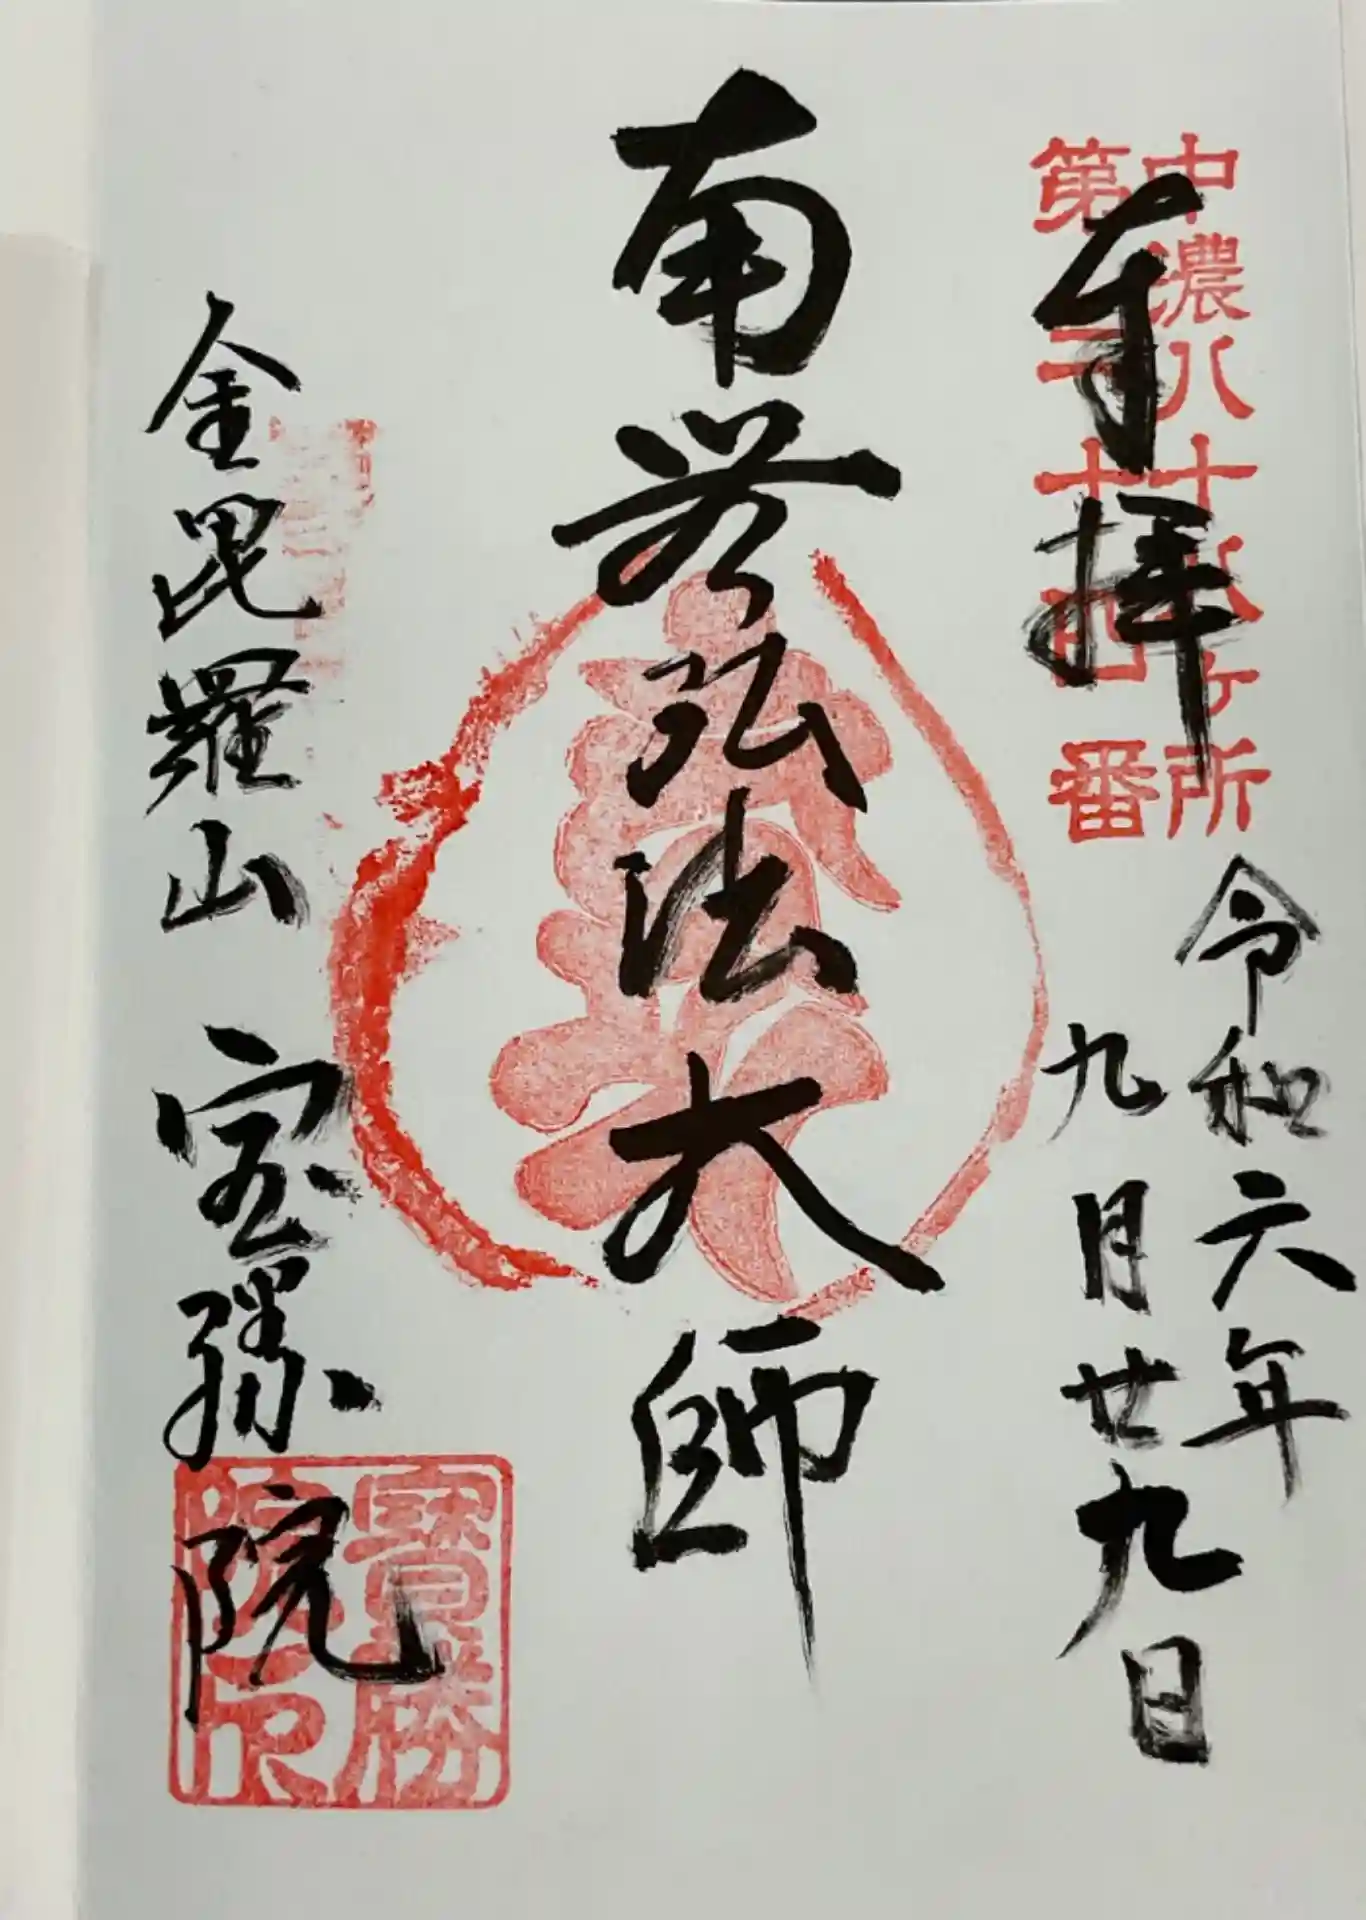 中濃八十八ヶ所
第二十四番
奉拝
令和六年
九月廿九日
南無弘法大師
金毘羅山 宝勝院
寶勝
院印